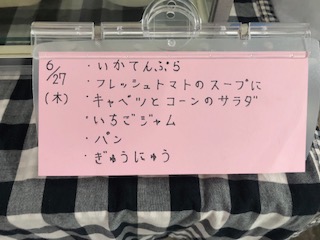 6/27
(木)
・いかてんぷら
・フレッシュトマトのスープに
・キャベツとコーンのサラダ
・いちごジャム
・パン
・ぎゅうにゅう